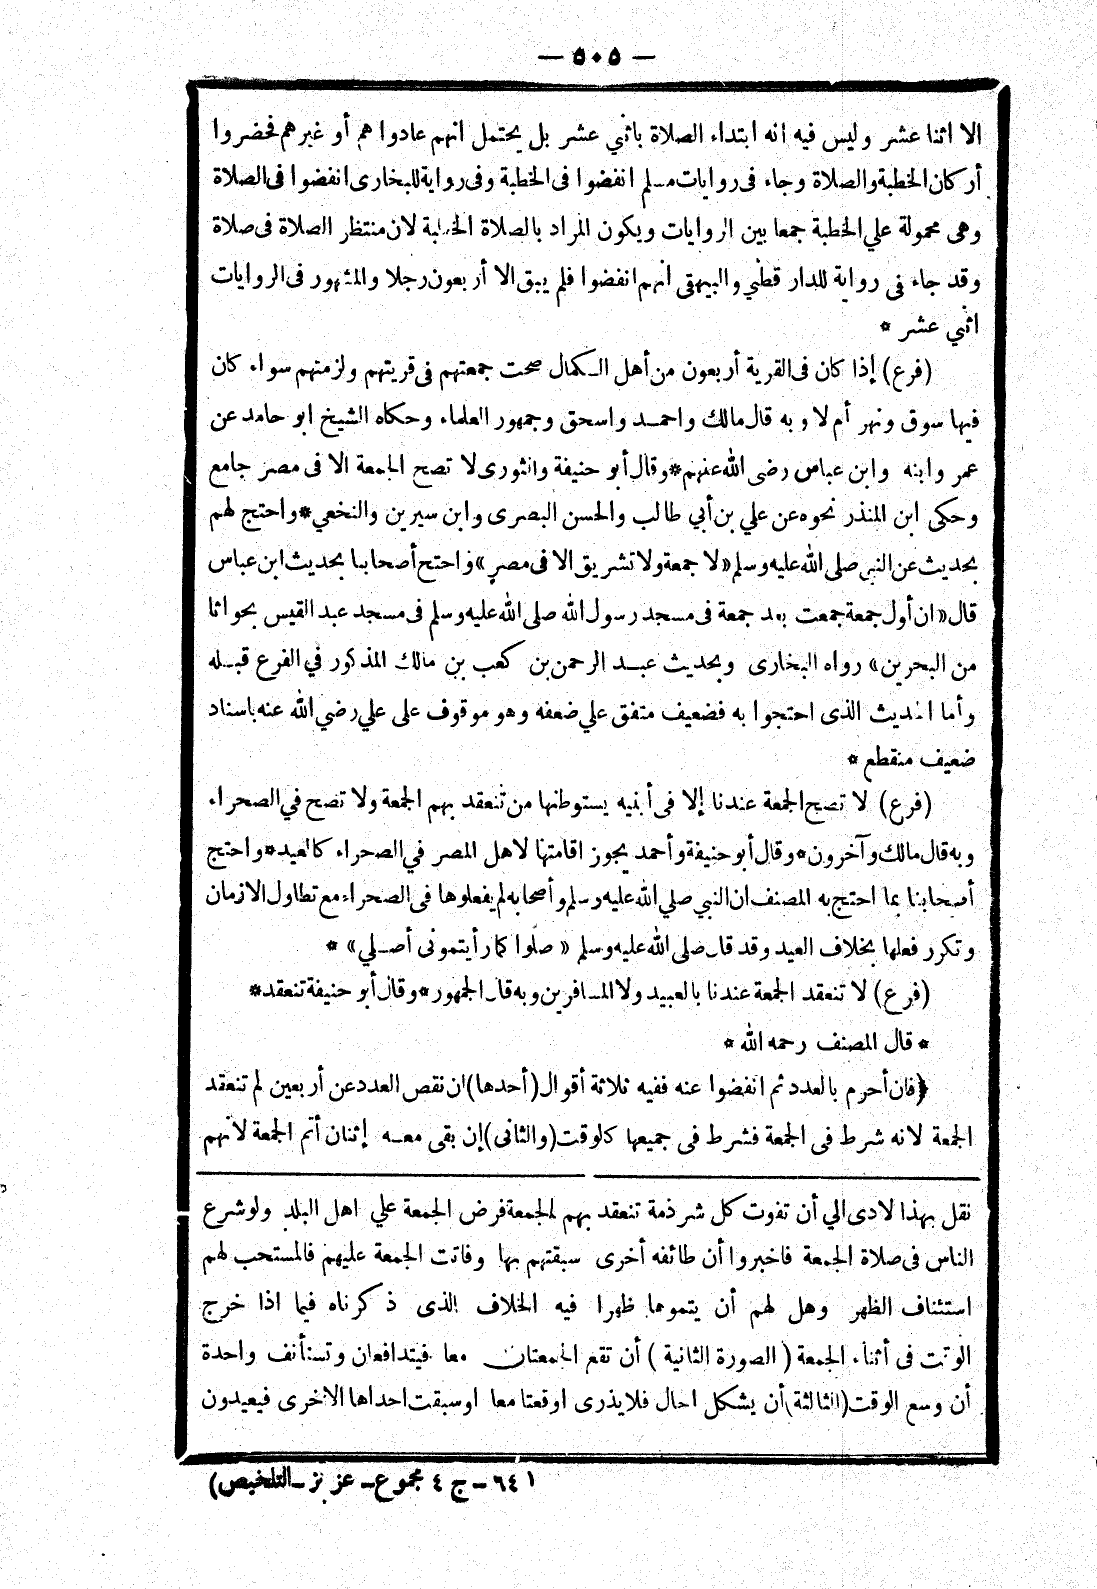 — ٥٠٥ —
الا اثنا عشر وليس فيه انه ابتداء الصلاة باثني عشر بل يحتمل انهم عادوا هم أو غيرهم فحضروا
أركان الخطبة والصلاة وجاء فى روايات مسلم انفضوا فى الخطبة وفى رواية للبخارى انفضوا فى الصلاة
وهى محمولة علي الخطبة جمعا بين الروايات ويكون المراد بالصلاة الخطبة لان منتظر الصلاة فى صلاة
وقد جاء فى رواية للدار قطني والبيهقى انهم انفضوا فلم يبق الا أربعون رجلا والمشهور فى الروايات
اثني عشر *
(فرع) إذا كان فى القرية أربعون من أهل الكمال صحت جمعتهم فى قريتهم ولزمتهم سواء كان
فيها سوق ونهر أم لا وبه قال مالك واحمد واسحق وجمهور العلماء وحكاه الشيخ ابو حامد عن
عمر وابنه وابن عباس رضى الله عنهم * وقال أبو حنيفة والثورى لا تصح الجمعة الا فى مصر جامع
وحكى ابن المنذر نحوه عن علي بن أبي طالب والحسن البصرى وابن سيرين والنخعي * واحتج لهم
بحديث عن النبي صلى الله عليه وسلم «لا جمعة ولا تشريق الا فى مصر» واحتج أصحابنا بحديث ابن عباس
قال «ان أول جمعة جمعت بعد جمعة فى مسجد رسول الله صلى الله عليه وسلم فى مسجد عبد القيس بجواثا
من البحرين» رواه البخارى وبحديث عبد الرحمن بن كعب بن مالك المذكور في الفرع قبله
وأما الحديث الذى احتجوا به فضعيف متفق علي ضعفه وهو موقوف على علي رضي الله عنه باسناد
ضعيف منقطع *
(فرع) لا تصح الجمعة عندنا إلا فى أبنيه يستوطنها من تنعقد بهم الجمعة ولا تصح في الصحراء
وبه قال مالك وآخرون * وقال أبو حنيفة وأحمد يجوز اقامتها لاهل المصر في الصحراء كالعيد * واحتج
أصحابنا بما احتج به المصنف ان النبي صلي الله عليه وسلم وأصحابه لم يفعلوها فى الصحراء مع تطاول الازمان
وتكرر فعلها بخلاف العيد وقد قال صلى الله عليه وسلم « صلوا كما رأيتمونى أصلي» *
(فرع) لا تنعقد الجمعة عندنا بالعبيد ولا المسافرين وبه قال الجمهور * وقال أبو حنيفة تنعقد *
* قال المصنف رحمه الله *
﴿فان أحرم بالعدد ثم انفضوا عنه ففيه ثلاثة أقوال (أحدها) ان نقص العدد عن أربعين لم تنعقد
الجمعة لانه شرط فى الجمعة فشرط فى جميعها كالوقت (والثانى) إن بقى معه إثنان أتم الجمعة لانهم
نقل بهذا لادى الي أن تفوت كل شرذمة تنعقد بهم الجمعة فرض الجمعة علي اهل البلد ولو شرع
الناس فى صلاة الجمعة فاخبروا أن طائفه أخرى سبقتهم بها وفاتت الجمعة عليهم فالمستحب لهم
استئناف الظهر وهل لهم أن يتموها ظهرا فيه الخلاف الذى ذكرناه فيما اذا خرج
الوقت فى أثناء الجمعة ( الصورة الثانية ) أن تقع الجمعتان معا فيتدافعان وتستأنف واحدة
أن وسع الوقت (الثالثة) أن يشكل الحال فلا يدرى اوقعتا معا او سبقت احداها الاخرى فيعيدون
٦٤١ - ج ٤ مجموع - عزيز - التلخيص)